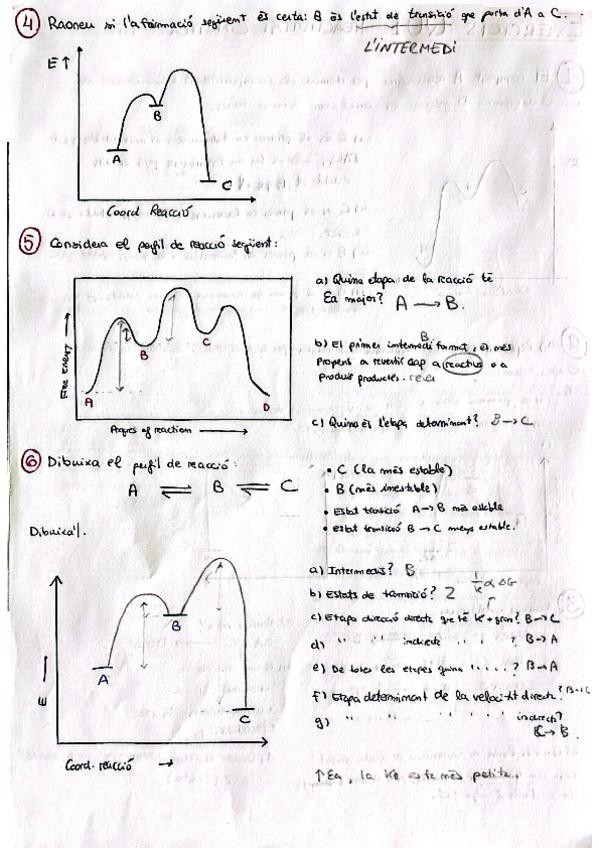 ④ Raoneu si l'afirmació següent és certa: B és l'estat de transició que porta d'A a C.
L'INTERMEDI
E↑
A
B
C
Coord Reacció
⑤ Considera el perfil de reacció següent:
Free energy
A
B
C
D
Progres of reaction
a) Quina etapa de la reacció té
Ea major? A → B.
B
b) El primer intermedi format, és més
propens a revertir cap a reactius o a
produir productes.
c) Quina és l'etapa determinant? B → C
⑥ Dibuixa el perfil de reacció:
A ⇌ B ⇌ C
• C (la més estable)
• B (més inestable)
• Estat transició A → B més estable
• Estat transició B → C menys estable.
Dibuixa'l.
E
A
B
C
Coord. reacció →
a) Intermedis? B
b) Estats de transició? 2 1/k α ΔG
c) Etapa direcció directe que té K + gran? B → C
d) " " indirecte " " ? B → A
e) De totes les etapes quina " " ? B → A
f) Etapa determinant de la velocitat directe? B → C
g) " " " " indirecte?
C → B.
↑Ea, la Ke és més petita.